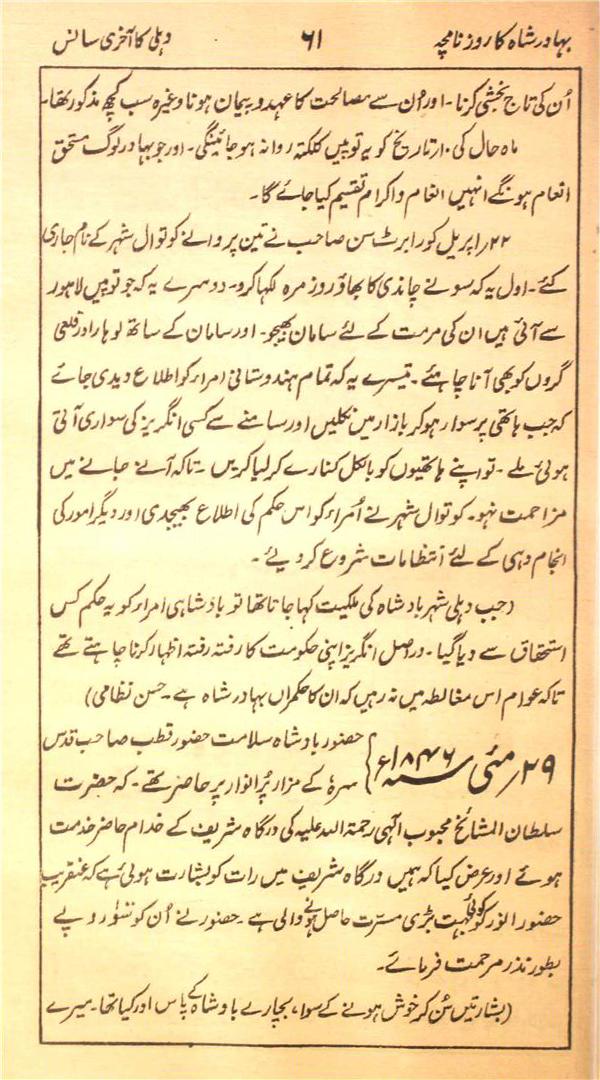 بہادر شاہ کا روزنامچہ ۶۱ دہلی کا آخری سانس
اُن کی تاج بخشی کرنا۔ اور اُن سے مصالحت کا عہد و پیمان ہونا وغیرہ سب کچھ مذکور تھا۔
ماہ حال کی ۱۰ر تاریخ کو یہ توپیں کلکتہ روانہ ہو جائینگی۔ اور جو بہادر لوگ مستحق
انعام ہونگے انہیں انعام و اکرام تقسیم کیا جائے گا۔
۲۲ر اپریل کو رابرٹ سن صاحب نے تین پروانے کوتوال شہر کے نام جاری
کئے۔ اول یہ کہ سونے چاندی کا بھاؤ روز مرہ لکھا کرو۔ دوسرے یہ کہ جو توپیں لاہور
سے آئی ہیں ان کی مرمت کے لئے سامان بھیجو۔ اور سامان کے ساتھ لوہار اور قلعی
گروں کو بھی آنا چاہئے۔ تیسرے یہ کہ تمام ہندوستانی امراء کو اطلاع دیدی جائے
کہ جب ہاتھی پر سوار ہو کر بازار میں نکلیں اور سامنے سے کسی انگریز کی سواری آتی
ہوئی ملے۔ تو اپنے ہاتھیوں کو بالکل کنارے کر لیا کریں۔ تاکہ آنے جانے میں
مزاحمت نہو۔ کوتوال شہر نے اُمراء کو اس حکم کی اطلاع بھیجدی اور دیگر امور کی
انجام دہی کے لئے انتظامات شروع کر دیئے۔
(جب دہلی شہر بادشاہ کی ملکیت کہا جاتا تھا تو بادشاہی امراء کو یہ حکم کس
استحقاق سے دیا گیا۔ دراصل انگریز اپنی حکومت کا رفتہ رفتہ اظہار کرنا چاہتے تھے
تاکہ عوام اس مغالطہ میں نہ رہیں کہ ان کا حکمراں بہادر شاہ ہے۔ حسن نظامی)
۲۹ر مئی سنہ ۱۸۴۶ء } حضور بادشاہ سلامت حضور قطب صاحب قدس
سرہٗ کے مزار پُر انوار پر حاضر تھے۔ کہ حضرت
سلطان المشائخ محبوب الٰہی رحمۃ اللہ علیہ کی درگاہ شریف کے خدام حاضر خدمت
ہوئے اور عرض کیا کہ ہمیں درگاہ شریف میں رات کو بشارت ہوئی ہے کہ عنقریب
حضور انور کو کوئی بہت بڑی مسرّت حاصل ہونے والی ہے۔ حضور نے اُن کو سَو روپے
بطور نذر مرحمت فرمائے۔
(بشارتیں سُن کر خوش ہونے کے سوا، بچارے بادشاہ کے پاس اور کیا تھا۔ میرے